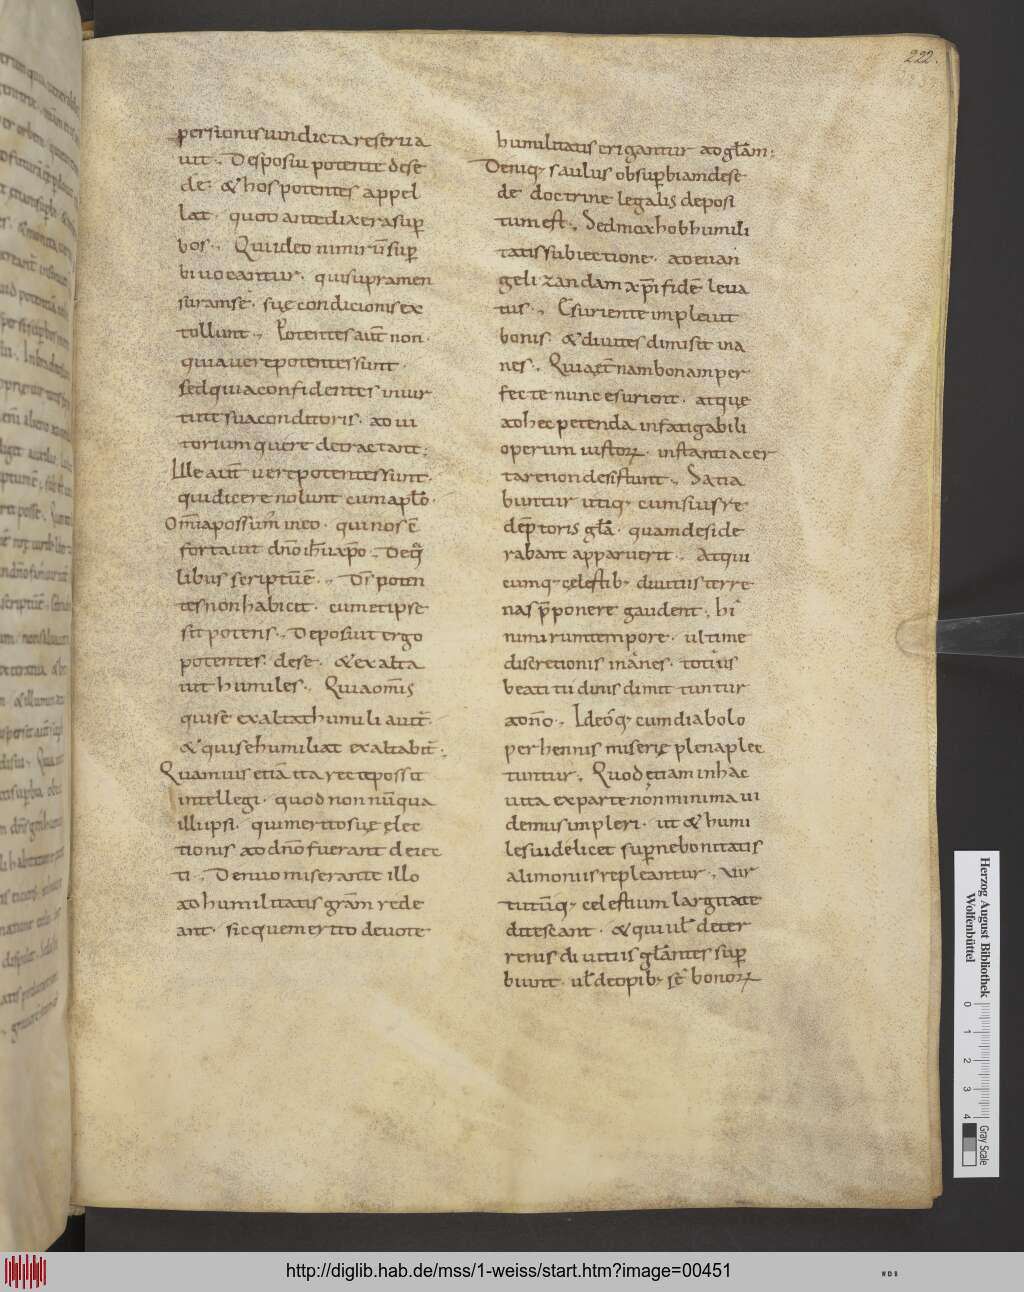 222.
persionis uindicta reserua
uit. Deposiu potente dese
de; & hos potentes appel
lat. quod ante dixerat sup
bos. Qui ideo nimirū sup
bi uocantur. qui supra men
suram sę. suę condicionis ex
tollunt. Potentes aut̄ non.
quia uere potentes sunt.
sed quia confidentes in uir
tute sua conditoris. ad iu
torium querę detractant;
Ille aut̄ uere potentes sunt.
qui dicere nolunt cum aplo.
Omīa possum in eo. qui nos ē
fortauit dn̄o ih̄u xp̄o. De q̄
libus scriptū ē. Dr̄ poten
tes non habicit. cum et ipse
sit potens. Deposuit ergo
potentes. dese. & exalta
uit humiles. Quia omīs
qui sē exaltat humiliauit̄.
& qui se humiliat exaltabit̄;
Quamuis etiā ita recte possit
intellegi. quod non nūqua
illi ipsi. qui merito suę elec
tionis ad dn̄o fuerant deiec
ti. Denuo miserante illo
ad humilitatis grām rede
ant. sic quem erito deuote
humilitatis erigantur ad glām;
Deniq; saulus ob supbiam dese
de doctrine legalis deposi
tum est. Sed mox hob humili
tatis subiectione. ad euan
gelizandam xp̄i fidē leua
tus. Esuriente impleuit
bonis. & diuites dimisit ina
nes. Quia et̄nam bonam per
fecte nunc esurient. atquę
ad hec petenda infatigabili
operum iustorꝝ. instantia cer
tare non desistunt. Satia
buntur utiq; cum siusre
dēptoris glā. quam deside
rabant apparuerit. At qui
cumq; cęlestib; diuitiis terre
nas p̄ponere gaudent. hi
nimirum tempore. ultime
discretionis inánes. totius
beatitudinis dimittuntur
a dn̄o. Ideoq; cum diabolo
perhennis miserię plena plec
tuntur. Quod etiam in hac
uita ex parte non minima ui
demus impleri. ut & humi
les uidelicet supne bonitatis
alimoniis repleantur. Vir
tutūq; celestium largitate
ditescant. & qui ul̄ deter
renis diuitiis glāntes sup
biunt. ul̄ de opib; sē bonorꝝ
Herzog August Bibliothek
Wolfenbüttel
0 1 2 3 4
Gray Scale
http://diglib.hab.de/mss/1-weiss/start.htm?image=00451